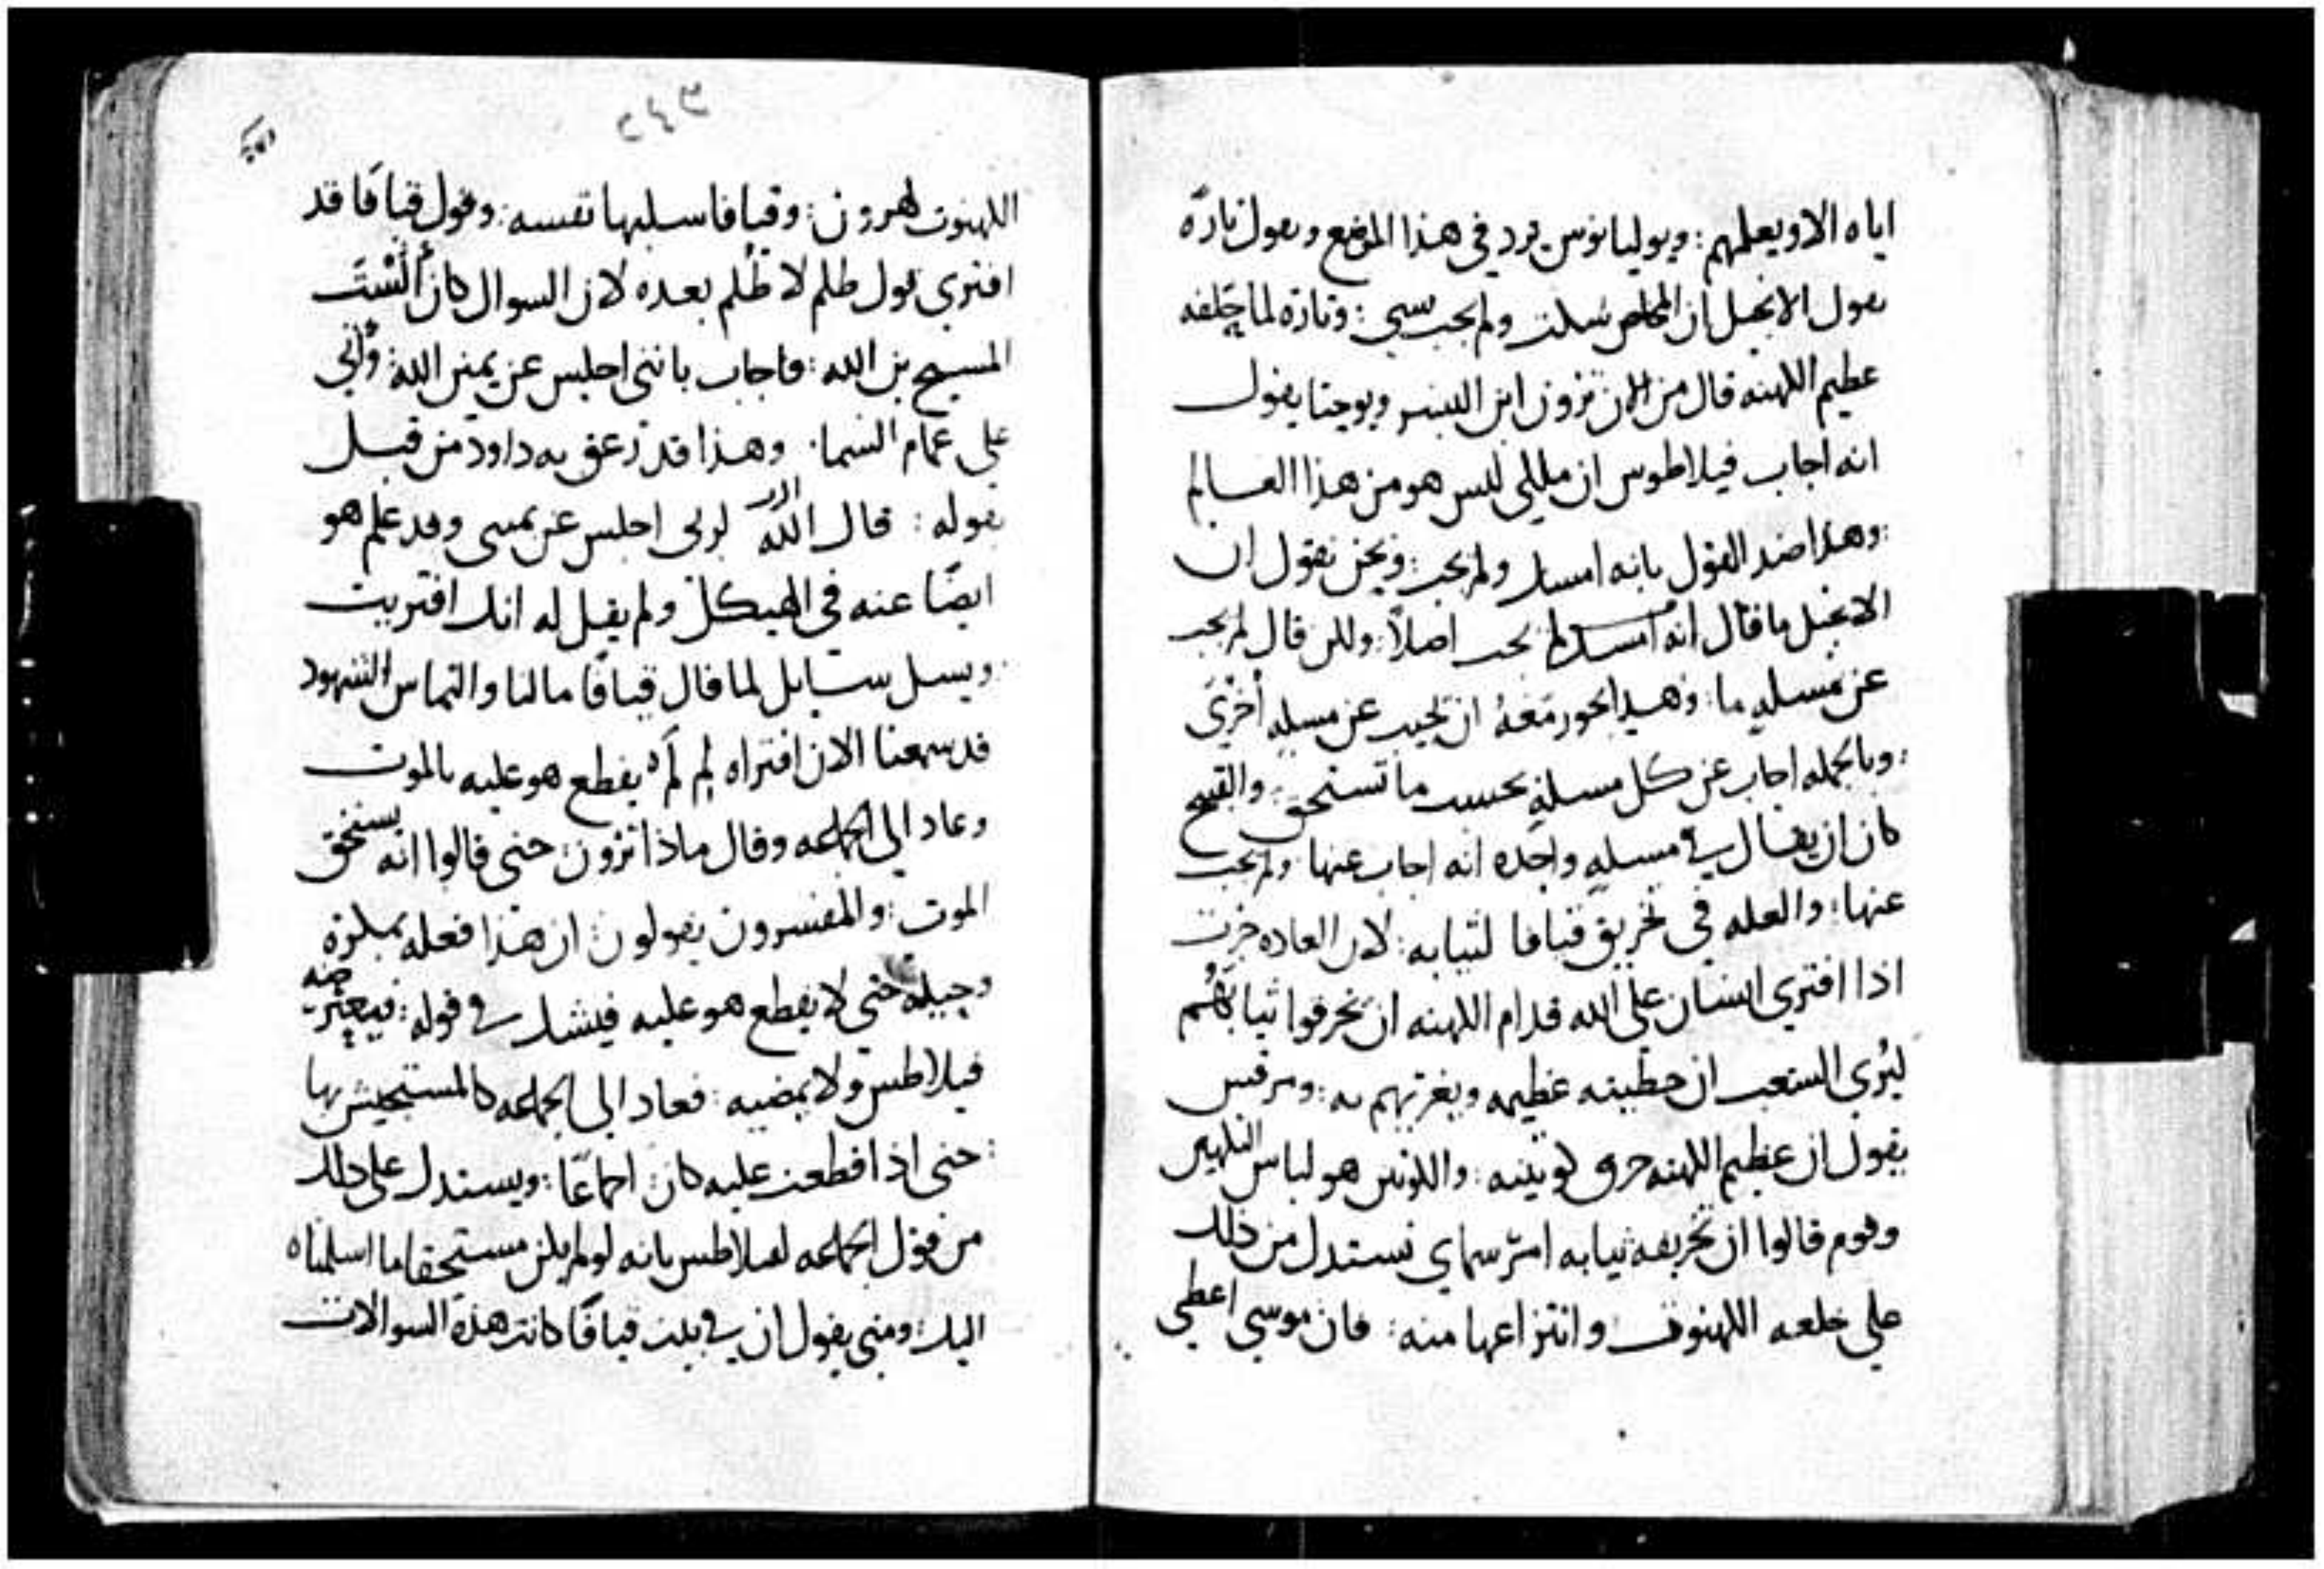 اياه الا ويعلمهم: ويوليانوس يرد في هذا الموضع ويقول تارة
يقول الانجيل ان المخلص سكت ولم يجب بشي: وتارة لما حلفه
عظيم الكهنه قال من الان ترون ابن البشر ويوحنا يقول
انه اجاب فيلاطوس ان ملكي ليس هو من هذا العالم
:وهذا ضد القول بانه امسك ولم يجب: ونحن نقول ان
الانجيل ما قال انه امسك لم يجب اصلاً: ولكن قال لم يجب
عن مسلهٍ ما: وهذا يجوز معهُ ان يجيب عن مسلهٍ أخرَى
:وبالجمله اجاب عن كل مسلةٍ بحسب ما تستحق: والقبيح
كان ان يقال في مسلهٍ واحده انه اجاب عنها ولم يجب
عنها: والعله في تخريق قيافا لثيابه: لان العاده جرت
اذا افتري انسان علي الله قدام الكهنه ان يخرقوا ثيابَهُم
ليُري الشعب ان خطيته عظيمه ويغريهم به: ومرقس
يقول ان عظيم الكهنه خرق كوتينه: والكوتين هو لباس الكهين
وقوم قالوا ان تخريقه ثيابه امرٌ سماي نستدل من ذلك
علي خلعه الكهنوت وانتزاعها منه: فان موسي اعطي
٢٤٣
الكهنوت لهرون: وقيافا سلبها نفسه: وقول قيافَا قد
افتري قول ظلم لا ظُلم بعده لان السوال كان أَلَسْتَ
المسيح بن الله: فاجاب بانني اجلس عن يمين الله وأتي
علي غمام السما: وهذا قد زعق به داود من قبل
بقوله: قال الله الرب لربي اجلس عن يميني وقد علم هو
ايضًا عنه في الهيكل ولم يقل له انك افتريت
:ويسل سايل لما قال قيافَا ما لنا والتماس الشهود
قد سمعنا الان افتراه لِم لَم يقطع هو عليه بالموت
وعاد الي الجماعه وقال ماذا ترون: حتي قالوا انه يستحق
الموت: والمفسرون يقولون: ان هذا فعله بمكرة
وحيلة حتي لا يقطع هو عليه فيشك في قوله: فيعترضه
فيلاطس ولا يمضيه: فعاد الي الجماعه كالمستجيش بها
:حتي اذا قطعت عليه كان: اجماعًا: ويستدل علي ذلك
من قول الجماعه لفيلاطس بانه لو لم يكن مستحقا ما اسلمناه
اليك: ومتي يقول ان في بيت قيافَا كانت هذه السوالات